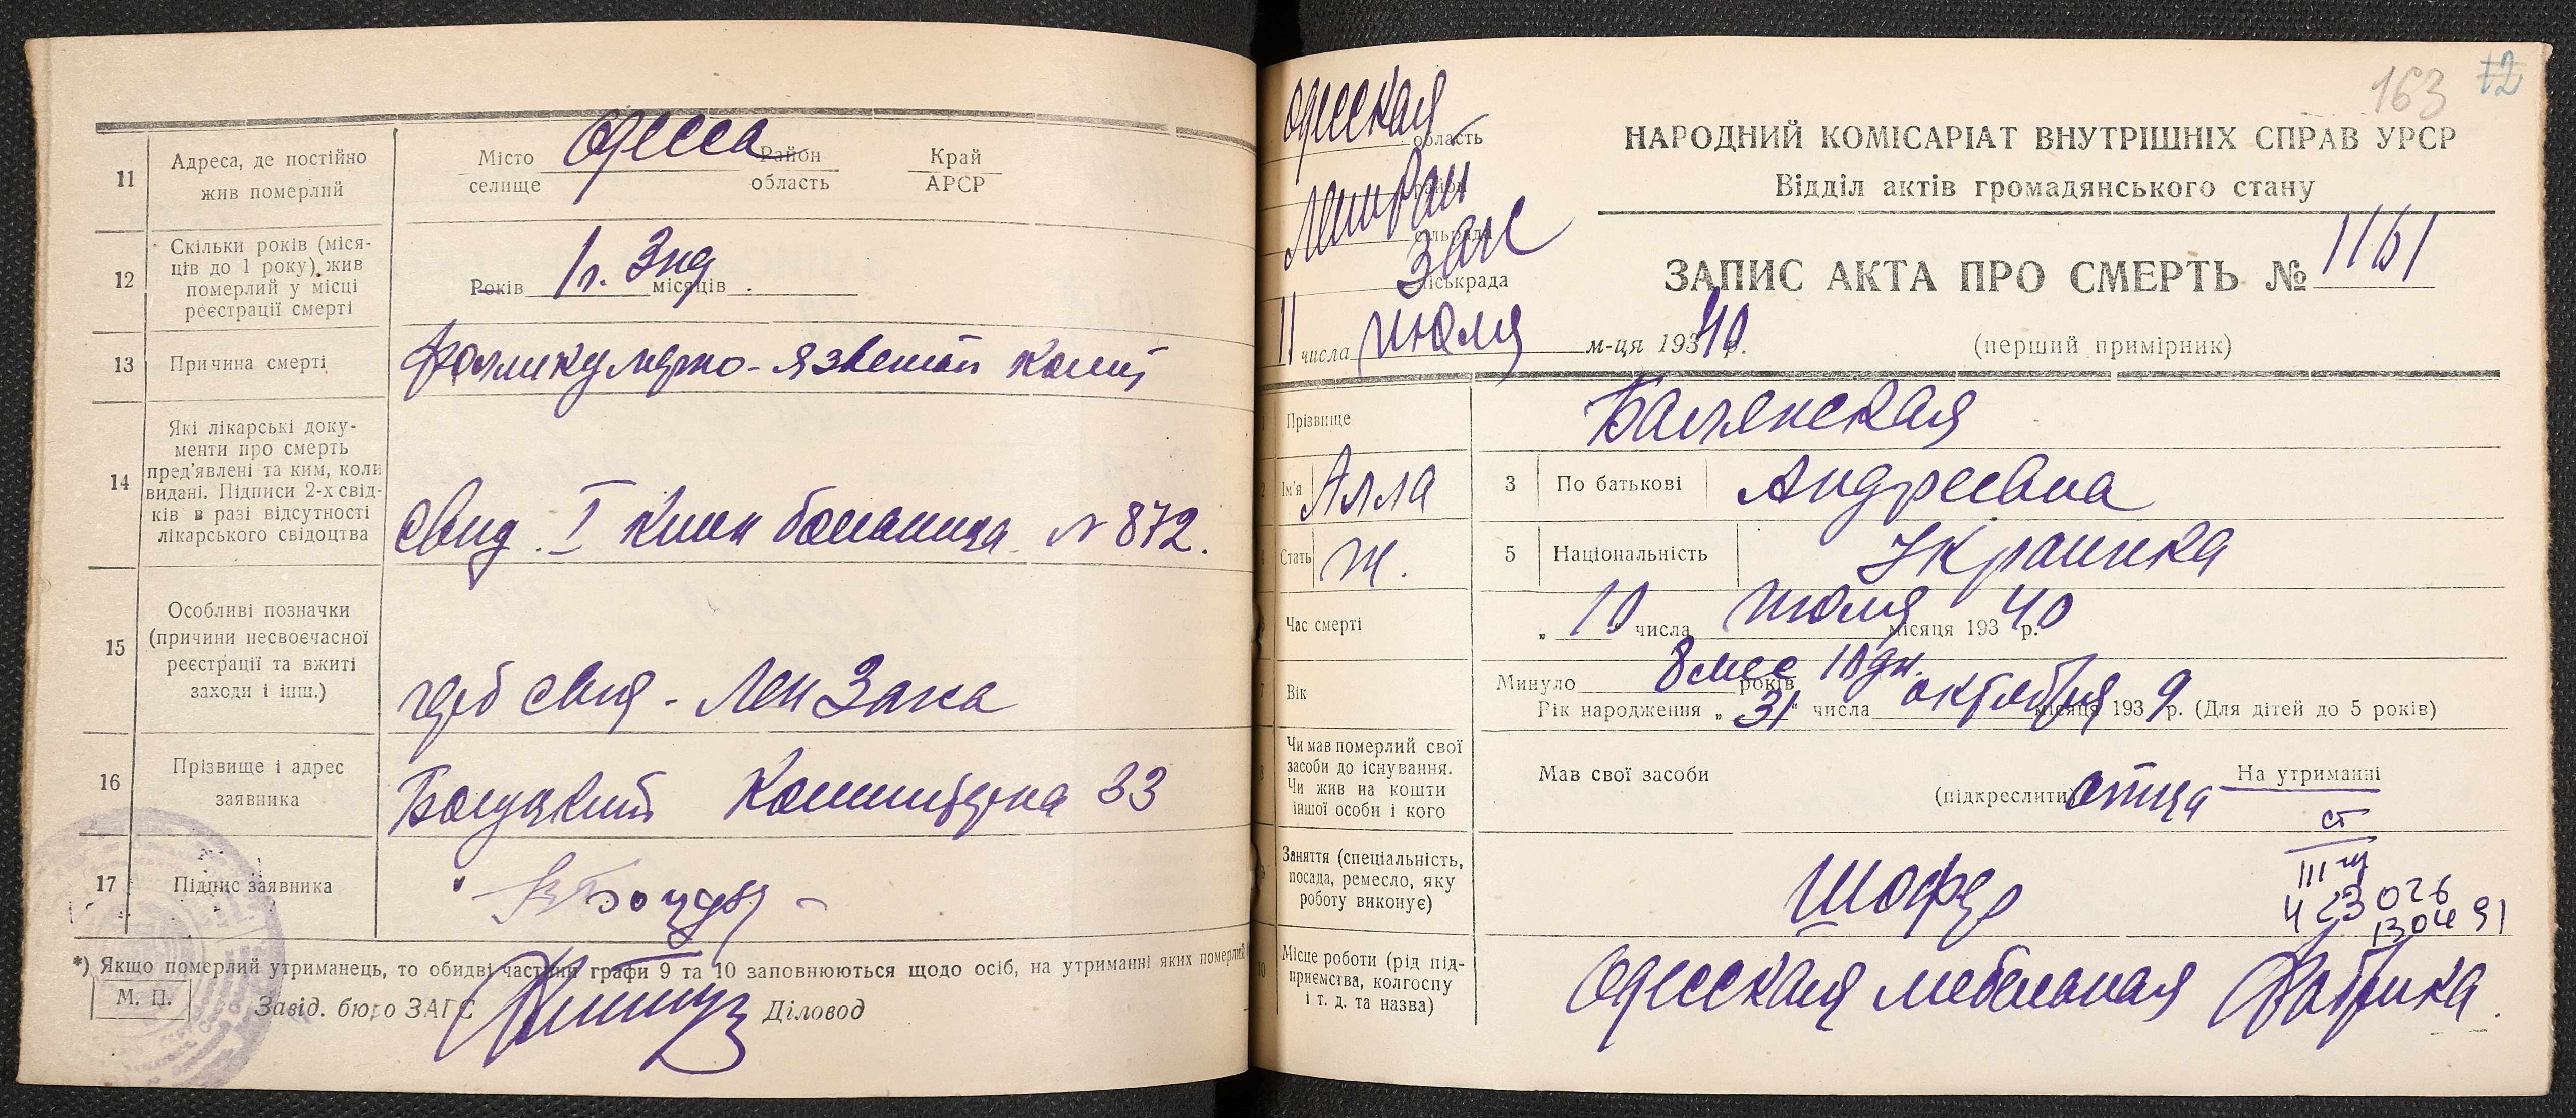 11
Адреса, де постійно
жив померлий
Місто
селище
Одесса
Район
область
Край
АРСР
12
Скільки років (міся-
ців до 1 року) жив
померлий у місці
реєстрації смерті
Років 1 г. 3 нд місяців
13
Причина смерті
Фолликулярно-язвеный колит
14
Які лікарські доку-
менти про смерть
пред'явлені та ким, коли
видані. Підписи 2-х свід-
ків в разі відсутності
лікарського свідоцтва
свид. I клин больница N 872.
15
Особливі позначки
(причини несвоєчасної
реєстрації та вжиті
заходи і інш.)
Лен Загса
16
Прізвище і адрес
заявника
33
17
Підпис заявника
*) Якщо померлий утриманець, то обидві частини графи 9 та 10 заповнюються щодо осіб, на утриманні яких померлий
М. П.
Завід. бюро ЗАГС
Діловод
163 72
Одесская
область
район
сільрада
Загс
міськрада
11 числа июля м-ця 193 40 р.
НАРОДНИЙ КОМІСАРІАТ ВНУТРІШНІХ СПРАВ УРСР
Відділ актів громадянського стану
ЗАПИС АКТА ПРО СМЕРТЬ № 1161
(перший примірник)
Прізвище
Ім'я Алла
3 По батькові Андреевна
Стать Ж.
5 Національність Украинка
Час смерті
„ 10 “ числа июля місяця 193 40 р.
Вік
Минуло 8 мес 10 дн. років
Рік народження „ 31 “ числа октября місяця 193 9 р. (Для дітей до 5 років)
Чи мав померлий свої
засоби до існування.
Чи жив на кошти
іншої особи і кого
Мав свої засоби
(підкреслити)
отца
На утриманні
ст
III
423026
130491
Заняття (спеціальність,
посада, ремесло, яку
роботу виконує)
Шофер
10
Місце роботи (рід під-
приємства, колгоспу
і т. д. та назва)
Одесская мебельная Фабрика.